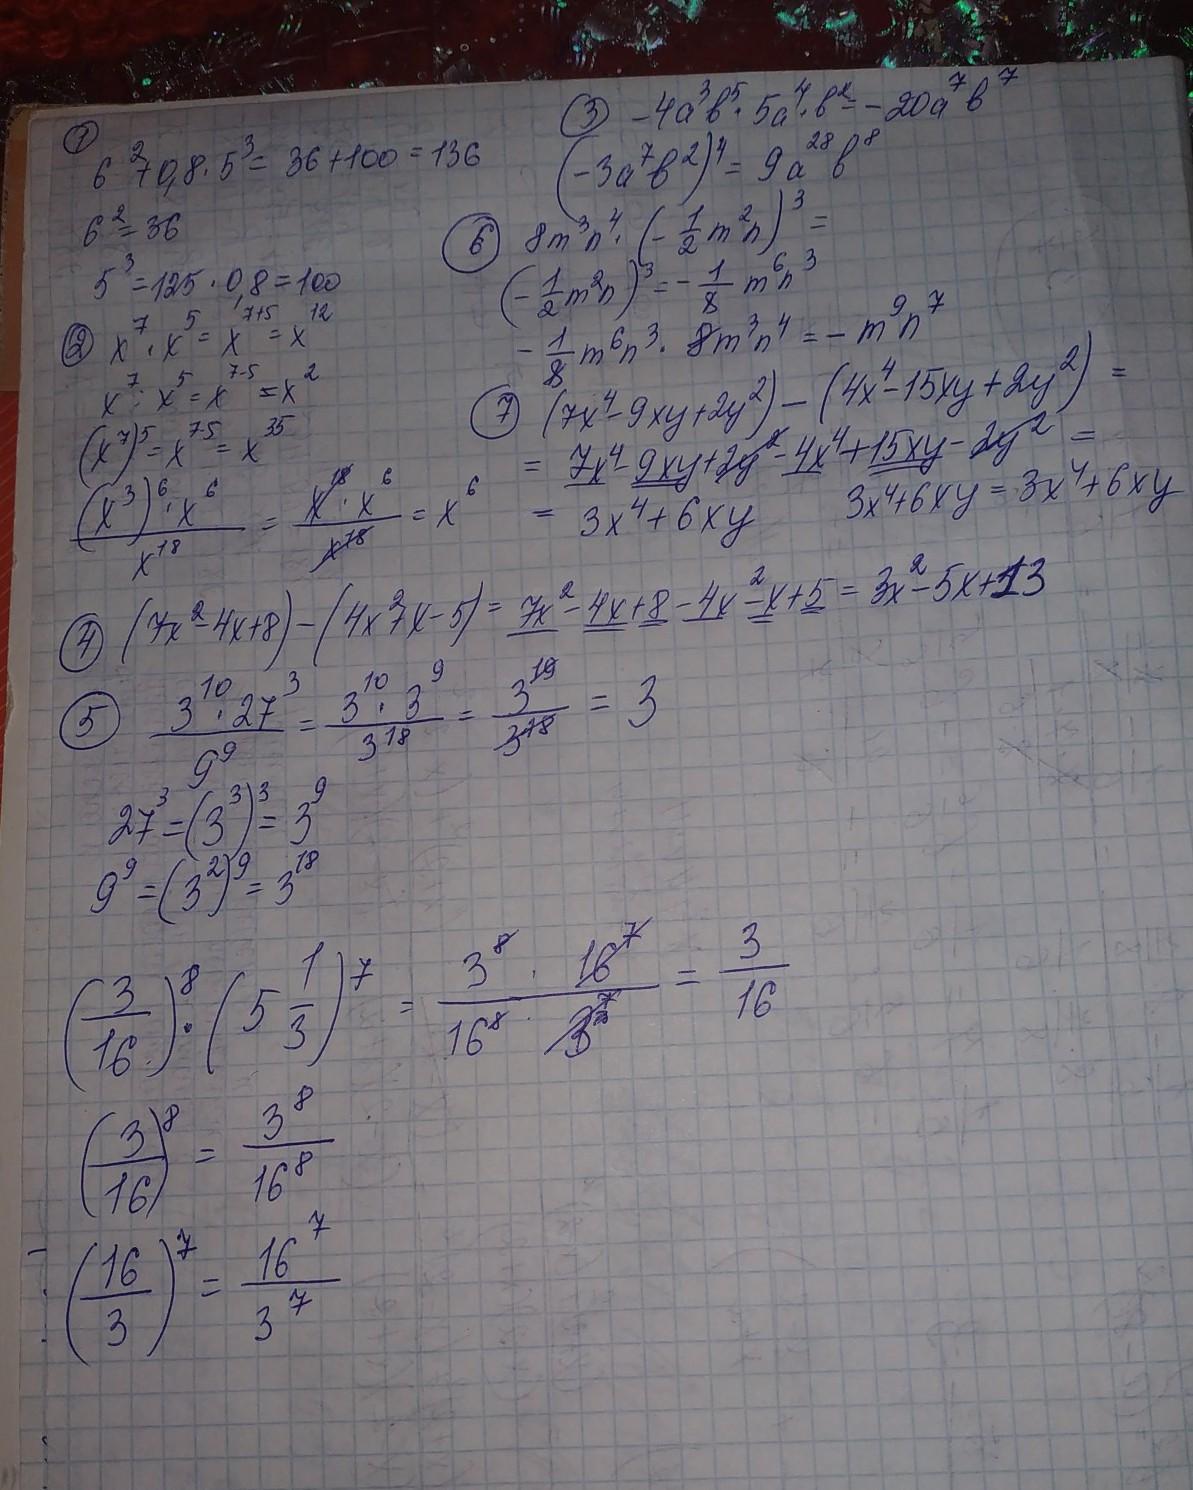 ①
6² + 0,8 · 5³ = 36 + 100 = 136
6² = 36
5³ = 125 · 0,8 = 100
② x⁷ · x⁵ = x⁷⁺⁵ = x¹²
x⁷ : x⁵ = x⁷⁻⁵ = x²
(x⁷)⁵ = x⁷·⁵ = x³⁵
(x³)⁶ · x⁶ / x¹⁸ = x¹⁸ · x⁶ / x¹⁸ = x⁶
③ -4a³b⁵ · 5a⁴ · b² = -20a⁷b⁷
(-3a⁷b²)⁴ = 9a²⁸b⁸
⑥ 8m³n⁴ · (-1/2 m²n)³ =
(-1/2 m²n)³ = -1/8 m⁶n³
-1/8 m⁶n³ · 8m³n⁴ = -m⁹n⁷
⑦ (7x⁴ - 9xy + 2y²) - (4x⁴ - 15xy + 2y²) =
= 7x⁴ - 9xy + 2y² - 4x⁴ + 15xy - 2y² =
= 3x⁴ + 6xy
3x⁴ + 6xy = 3x⁴ + 6xy
④ (7x² - 4x + 8) - (4x² + x - 5) = 7x² - 4x + 8 - 4x² - x + 5 = 3x² - 5x + 13
⑤ 3¹⁰ · 27³ / 9⁹ = 3¹⁰ · 3⁹ / 3¹⁸ = 3¹⁹ / 3¹⁸ = 3
27³ = (3³)³ = 3⁹
9⁹ = (3²)⁹ = 3¹⁸
(3/16)⁸ · (5 1/3)⁷ = 3⁸ · 16⁷ / 16⁸ · 3⁷ = 3/16
(3/16)⁸ = 3⁸/16⁸
(16/3)⁷ = 16⁷/3⁷